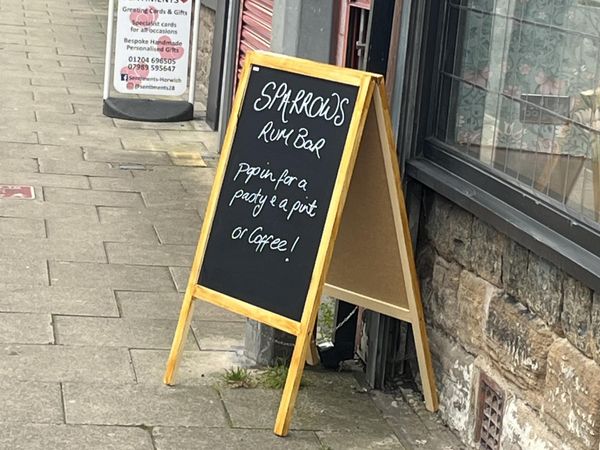 Greeting Cards
& Gifts
Specialist cards
for all occasions
Bespoke Handmade
Personalised Gifts
01204 696505
07989 593647
Sentiments-Horwich
@sentiments28
SPARROWS
RUM BAR
Pop in for a
pasty & a pint
or Coffee!